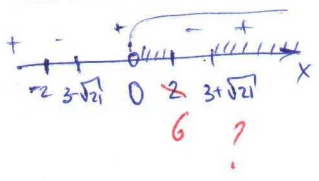 + - + - +
-2 3-√21 0 2 3+√21 x
6 ?